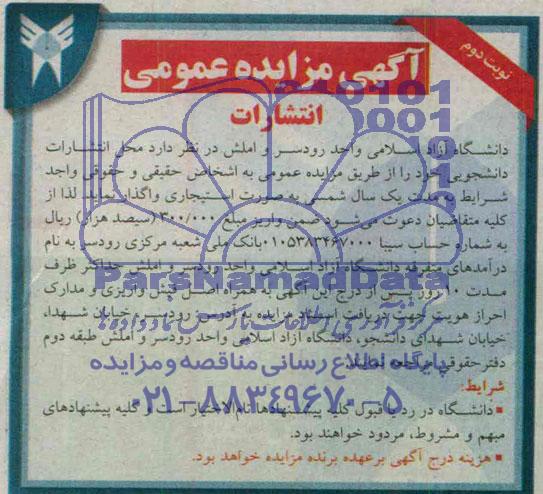 نوبت دوم
آگهی مزایده عمومی
انتشارات
دانشگاه آزاد اسلامی واحد رودسر و املش در نظر دارد محل انتشارات
دانشجویی خود را از طریق مزایده عمومی به اشخاص حقیقی و حقوقی واجد
شرایط به مدت یک سال شمسی به صورت استیجاری واگذار نماید. لذا از
کلیه متقاضیان دعوت می‌شود ضمن واریز مبلغ ۳۰۰/۰۰۰ (سیصد هزار) ریال
به شماره حساب سیبا ۰۱۰۵۳۸۳۴۶۷۰۰۰ بانک ملی شعبه مرکزی رودسر به نام
درآمدهای متفرقه دانشگاه آزاد اسلامی واحد رودسر و املش حداکثر ظرف
مدت ۱۰ روز پس از درج این آگهی به همراه اصل فیش واریزی و مدارک
احراز هویت جهت دریافت اسناد مزایده به آدرس: رودسر، خیابان شهدا،
خیابان شهدای دانشجو، دانشگاه آزاد اسلامی واحد رودسر و املش طبقه دوم
دفتر حقوقی مراجعه نمایند.
شرایط:
■ دانشگاه در رد یا قبول کلیه پیشنهادها تام‌الاختیار است و کلیه پیشنهادهای
مبهم و مشروط، مردود خواهند بود.
■ هزینه درج آگهی برعهده برنده مزایده خواهد بود.
ParsNamadData
پایگاه اطلاع رسانی مناقصه و مزایده
۰۲۱-۸۸۳۴۹۶۷۰-۵